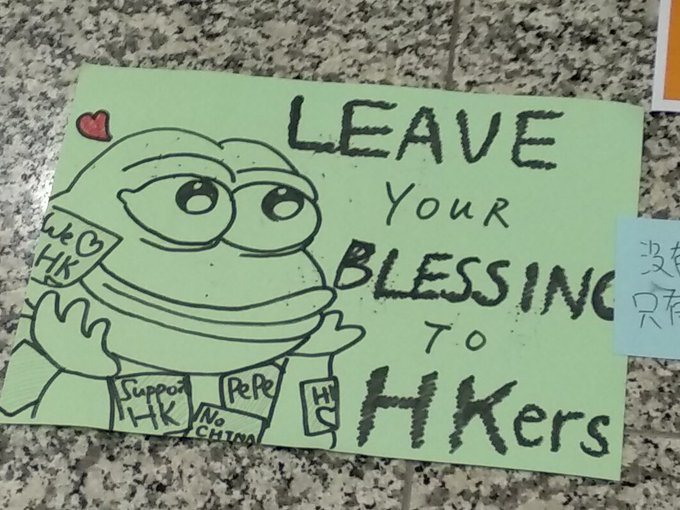 LEAVE
YOUR
BLESSING
TO
HKers
We
HK
Support
HK
PePe
NO
CHINA
没有
只有